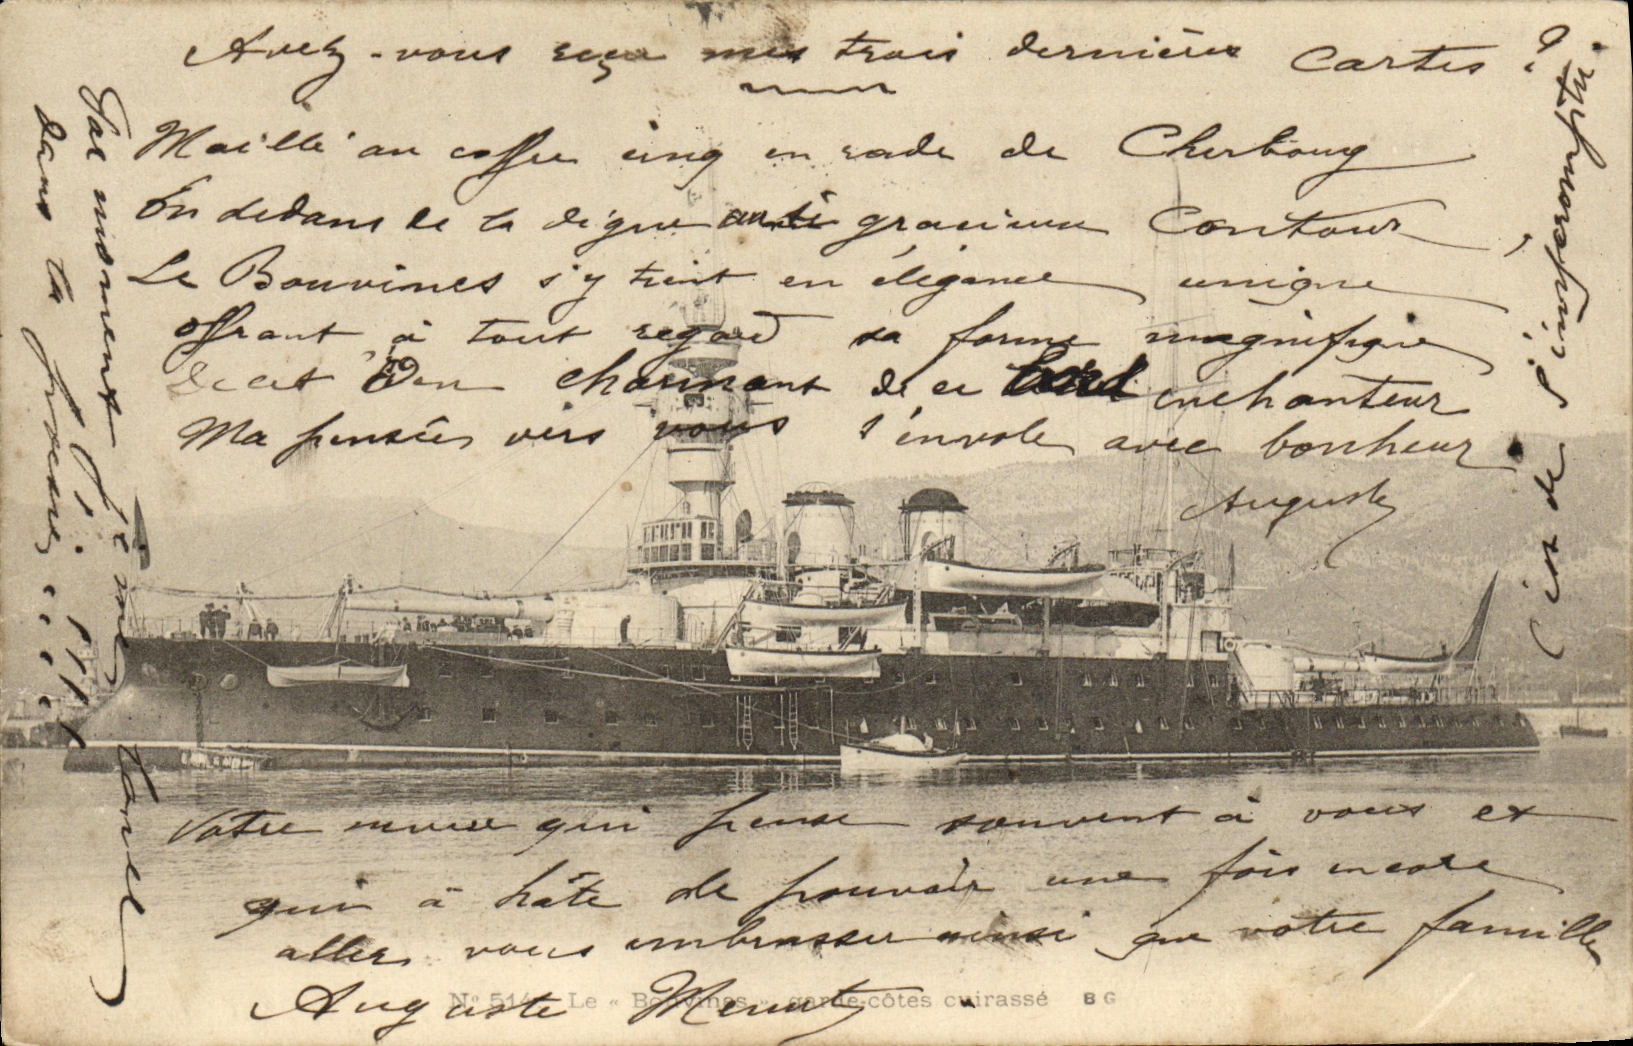 Avez-vous reçu mes trois dernières cartes ?
Mouillé au coffre cinq en rade de Cherbourg
En dedans de la digue au gracieux Contour,
Le Bouvines s'y tient en élégance unique
offrant à tout regard sa forme magnifique
De cet Eden charmant de ce bord enchanteur
Ma pensée vers vous s'envole avec bonheur
Auguste
Votre neveu qui pense souvent à vous et
qui a hâte de pouvoir une fois encore
aller vous embrasser ainsi que votre famille
Auguste
No 514 Le « Bouvines » garde-côtes cuirassé BG
Par moment je me lance
dans la
C'est de l'